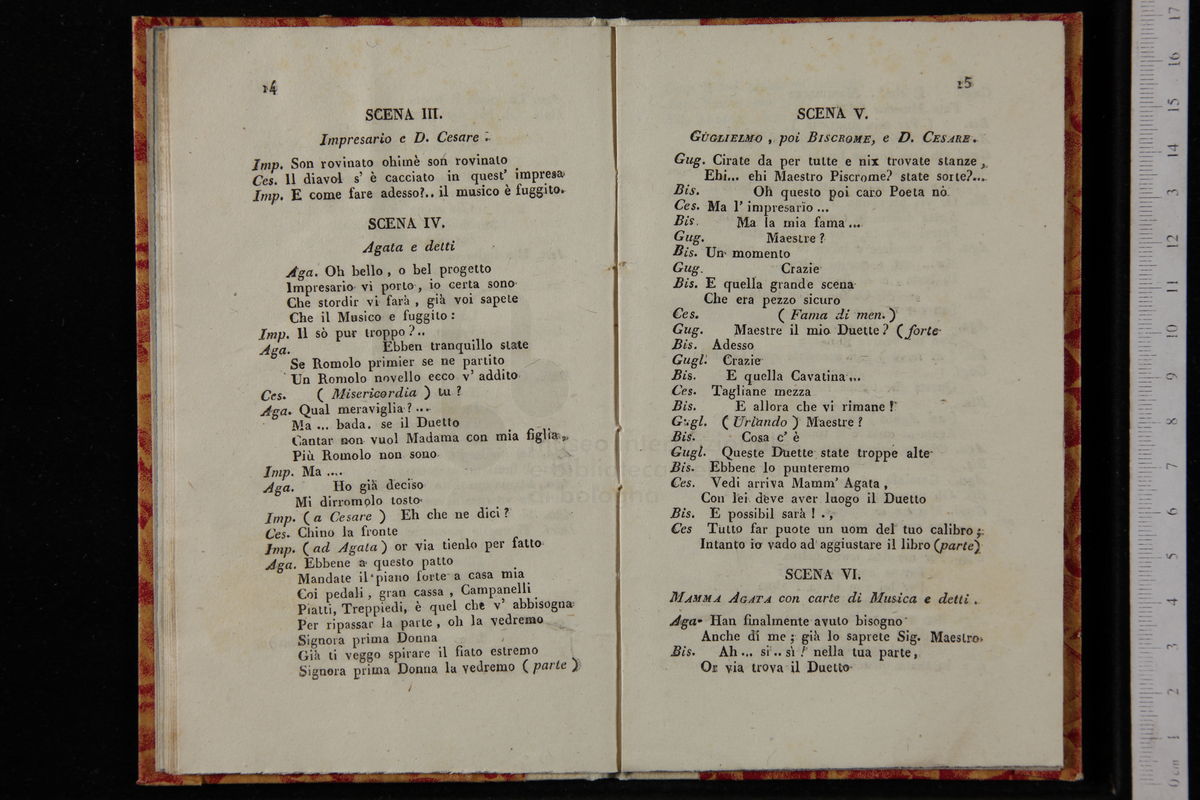 14
SCENA III.
Impresario e D. Cesare .
Imp. Son rovinato ohimè son rovinato
Ces. Il diavol s' è cacciato in quest' impresa
Imp. E come fare adesso?.. il musico è fuggito.
SCENA IV.
Agata e detti
Aga. Oh bello , o bel progetto
Impresario vi porto , io certa sono
Che stordir vi farà , già voi sapete
Che il Musico e fuggito :
Imp. Il sò pur troppo ?..
Aga. Ebben tranquillo state
Se Romolo primier se ne partito
Un Romolo novello ecco v' addito
Ces. ( Misericordia ) tu ?
Aga. Qual meraviglia ? ...
Ma ... bada. se il Duetto
Cantar non vuol Madama con mia figlia,
Più Romolo non sono
Imp. Ma ....
Aga. Ho già deciso
Mi dirromolo tosto
Imp. ( a Cesare ) Eh che ne dici ?
Ces. Chino la fronte
Imp. ( ad Agata ) or via tienlo per fatto
Aga. Ebbene a questo patto
Mandate il piano forte a casa mia
Coi pedali , gran cassa , Campanelli
Piatti, Treppiedi, è quel che v' abbisogna
Per ripassar la parte , oh la vedremo
Signora prima Donna
Già ti veggo spirare il fiato estremo
Signora prima Donna la vedremo ( parte )
15
SCENA V.
GUGLIELMO , poi BISCROME, e D. CESARE .
Gug. Cirate da per tutte e nix trovate stanze ,
Ehi... ehi Maestro Piscrome? state sorte?...
Bis. Oh questo poi caro Poeta nò
Ces. Ma l' impresario ...
Bis. Ma la mia fama ...
Gug. Maestre ?
Bis. Un momento
Gug. Crazie
Bis. E quella grande scena
Che era pezzo sicuro
Ces. ( Fama di men. )
Gug. Maestre il mio Duette ? ( forte
Bis. Adesso
Gugl. Crazie
Bis. E quella Cavatina ...
Ces. Tagliane mezza
Bis. E allora che vi rimane !
Gugl. ( Urlando ) Maestre ?
Bis. Cosa c' è
Gugl. Queste Duette state troppe alte
Bis. Ebbene lo punteremo
Ces. Vedi arriva Mamm' Agata ,
Con lei deve aver luogo il Duetto
Bis. E possibil sarà ! . ,
Ces Tutto far puote un uom del tuo calibro ;
Intanto io vado ad aggiustare il libro (parte)
SCENA VI.
MAMMA AGATA con carte di Musica e detti .
Aga. Han finalmente avuto bisogno
Anche di me ; già lo saprete Sig. Maestro.
Bis. Ah ... si .. sì ! nella tua parte ,
Or via trova il Duetto
museo internazionale
e biblioteca
di bologna
0 cm 1 2 3 4 5 6 7 8 9 10 11 12 13 14 15 16 17